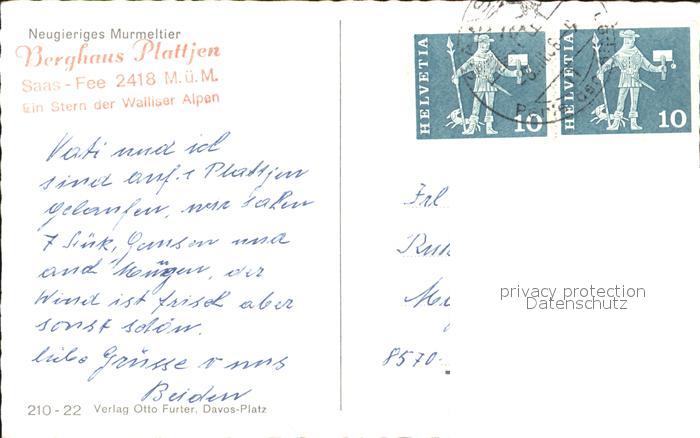 Neugieriges Murmeltier
Berghaus Plattjen
Saas-Fee 2418 M.ü.M.
Ein Stern der Walliser Alpen
HELVETIA 10
HELVETIA 10
Vati und ich
sind auf Plattjen
gelaufen, wir sahen
7 Stük, Gemsen und
and Vögel, der
Wind ist frisch aber
sonst schön.
liebe Grüsse v uns
Beiden
Frl
8570-
privacy protection
Datenschutz
210-22 Verlag Otto Furter, Davos-Platz